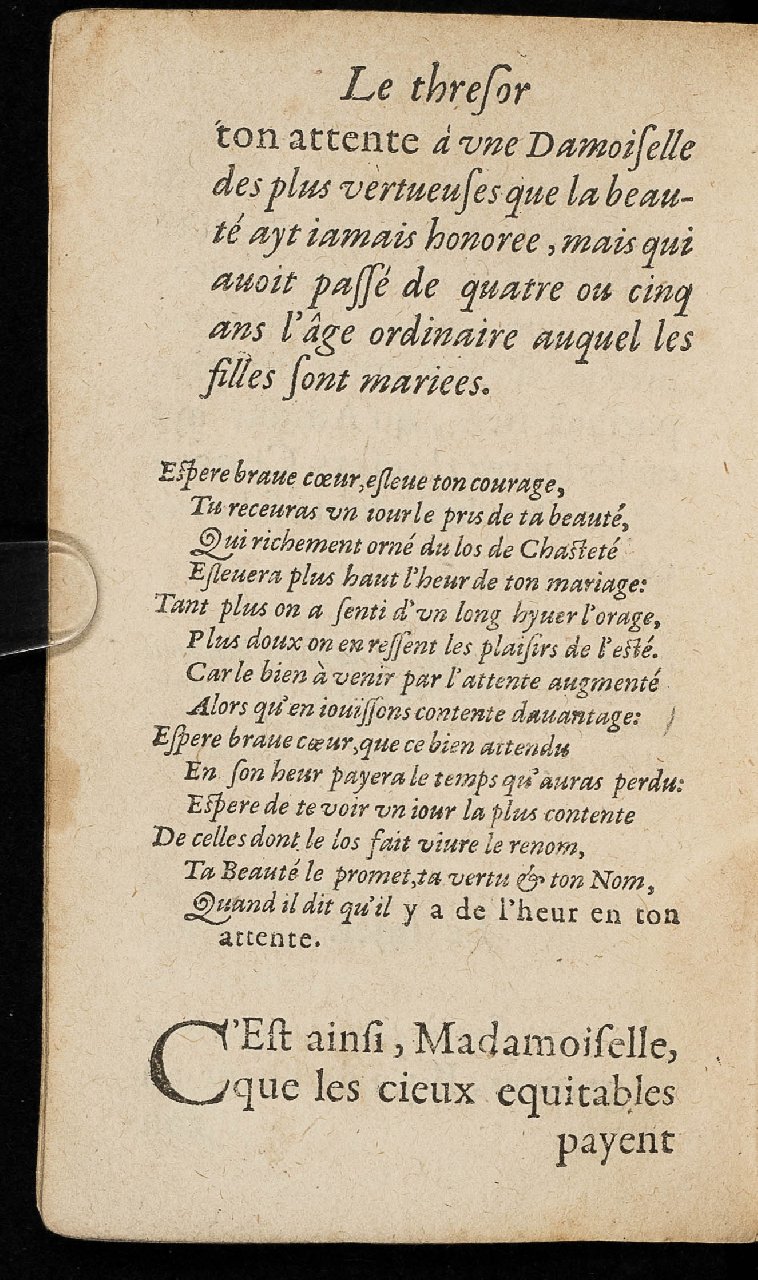 Le threſor
ton attente à vne Damoiſelle
des plus vertueuſes que la beau-
té ayt iamais honoree, mais qui
auoit paſſé de quatre ou cinq
ans l'âge ordinaire auquel les
filles ſont mariees.
Eſpere braue cœur, eſleue ton courage,
Tu receuras vn iour le pris de ta beauté,
Qui richement orné du los de Chaſteté
Eſleuera plus haut l'heur de ton mariage:
Tant plus on a ſenti d'vn long hyuer l'orage,
Plus doux on en reſſent les plaiſirs de l'eſté.
Car le bien à venir par l'attente augmenté
Alors qu'en iouïſſons contente dauantage:
Eſpere braue cœur, que ce bien attendu
En ſon heur payera le temps qu'auras perdu:
Eſpere de te voir vn iour la plus contente
De celles dont le los fait viure le renom,
Ta Beauté le promet, ta vertu & ton Nom,
Quand il dit qu'il y a de l'heur en ton
attente.
C'Eſt ainſi, Madamoiſelle,
que les cieux equitables
payent